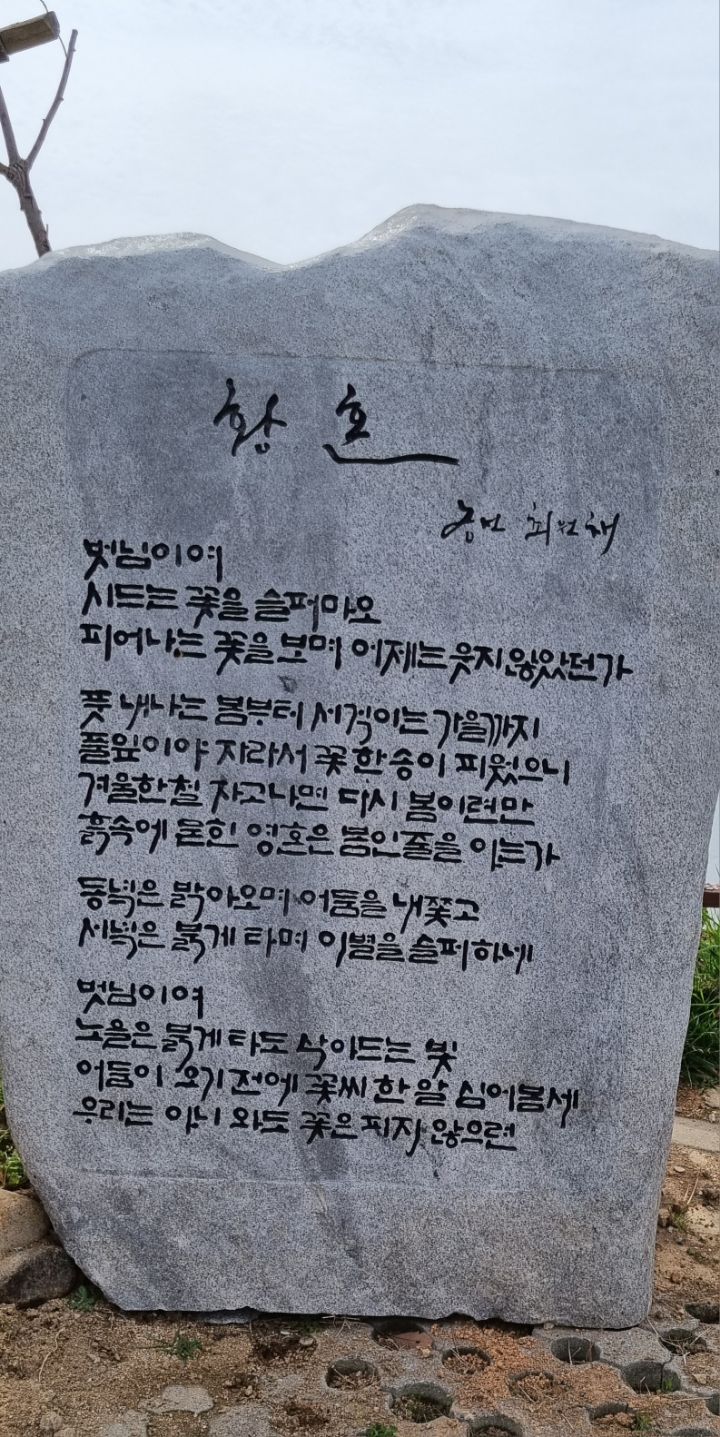 황혼
송민 최원채
벗님이여
시드는 꽃을 슬퍼마오
피어나는 꽃을 보며 어제는 웃지 않았던가
풋 내나는 봄부터 서걱이는 가을까지
풀잎이야 자라서 꽃 한송이 피웠으니
겨울한철 자고나면 다시 봄이련만
흙속에 묻힌 영혼은 봄인줄을 아는가
동녘은 밝아오며 어둠을 내쫓고
서녘은 붉게 타며 이별을 슬퍼하네
벗님이여
노을은 붉게 타도 삭아드는 빛
어둠이 오기 전에 꽃씨 한 알 심어봄세
우리는 아니 와도 꽃은 피지 않으련